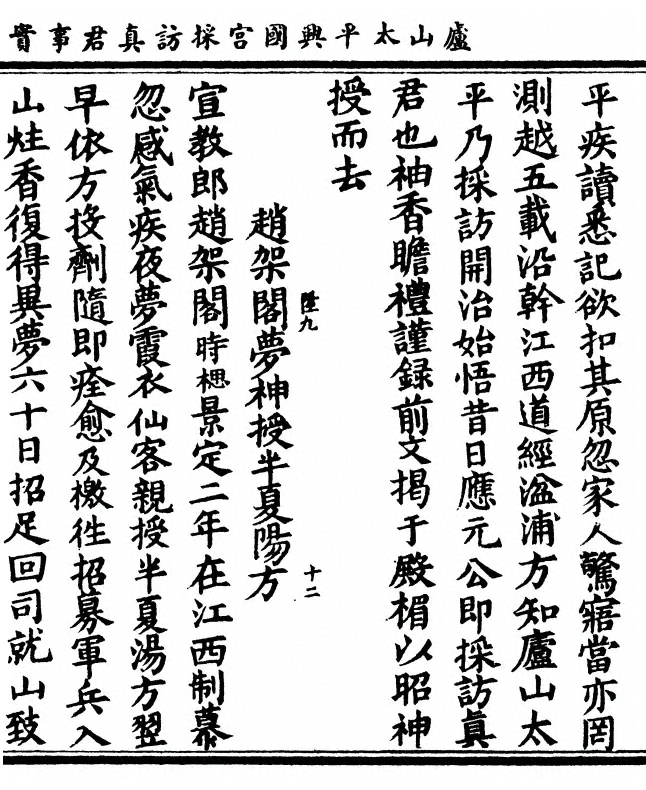 廬山太平興國宮採訪真君事實
平疾讀悉記欲扣其原忽家人驚寤當亦罔
測越五載沿幹江西道經湓浦方知廬山太
平乃採訪開治始悟昔日應元公即採訪眞
君也袖香瞻禮謹録前文揭于殿楣以昭神
授而去
陸九
趙架閣夢神授半夏陽方
十二
宣教郎趙架閣時楒景定二年在江西制幕
忽感氣疾夜夢霞衣仙客親授半夏湯方翌
早依方投劑隨即痊愈及檄徃招募軍兵入
山炷香復得異夢六十日招足回司就山致